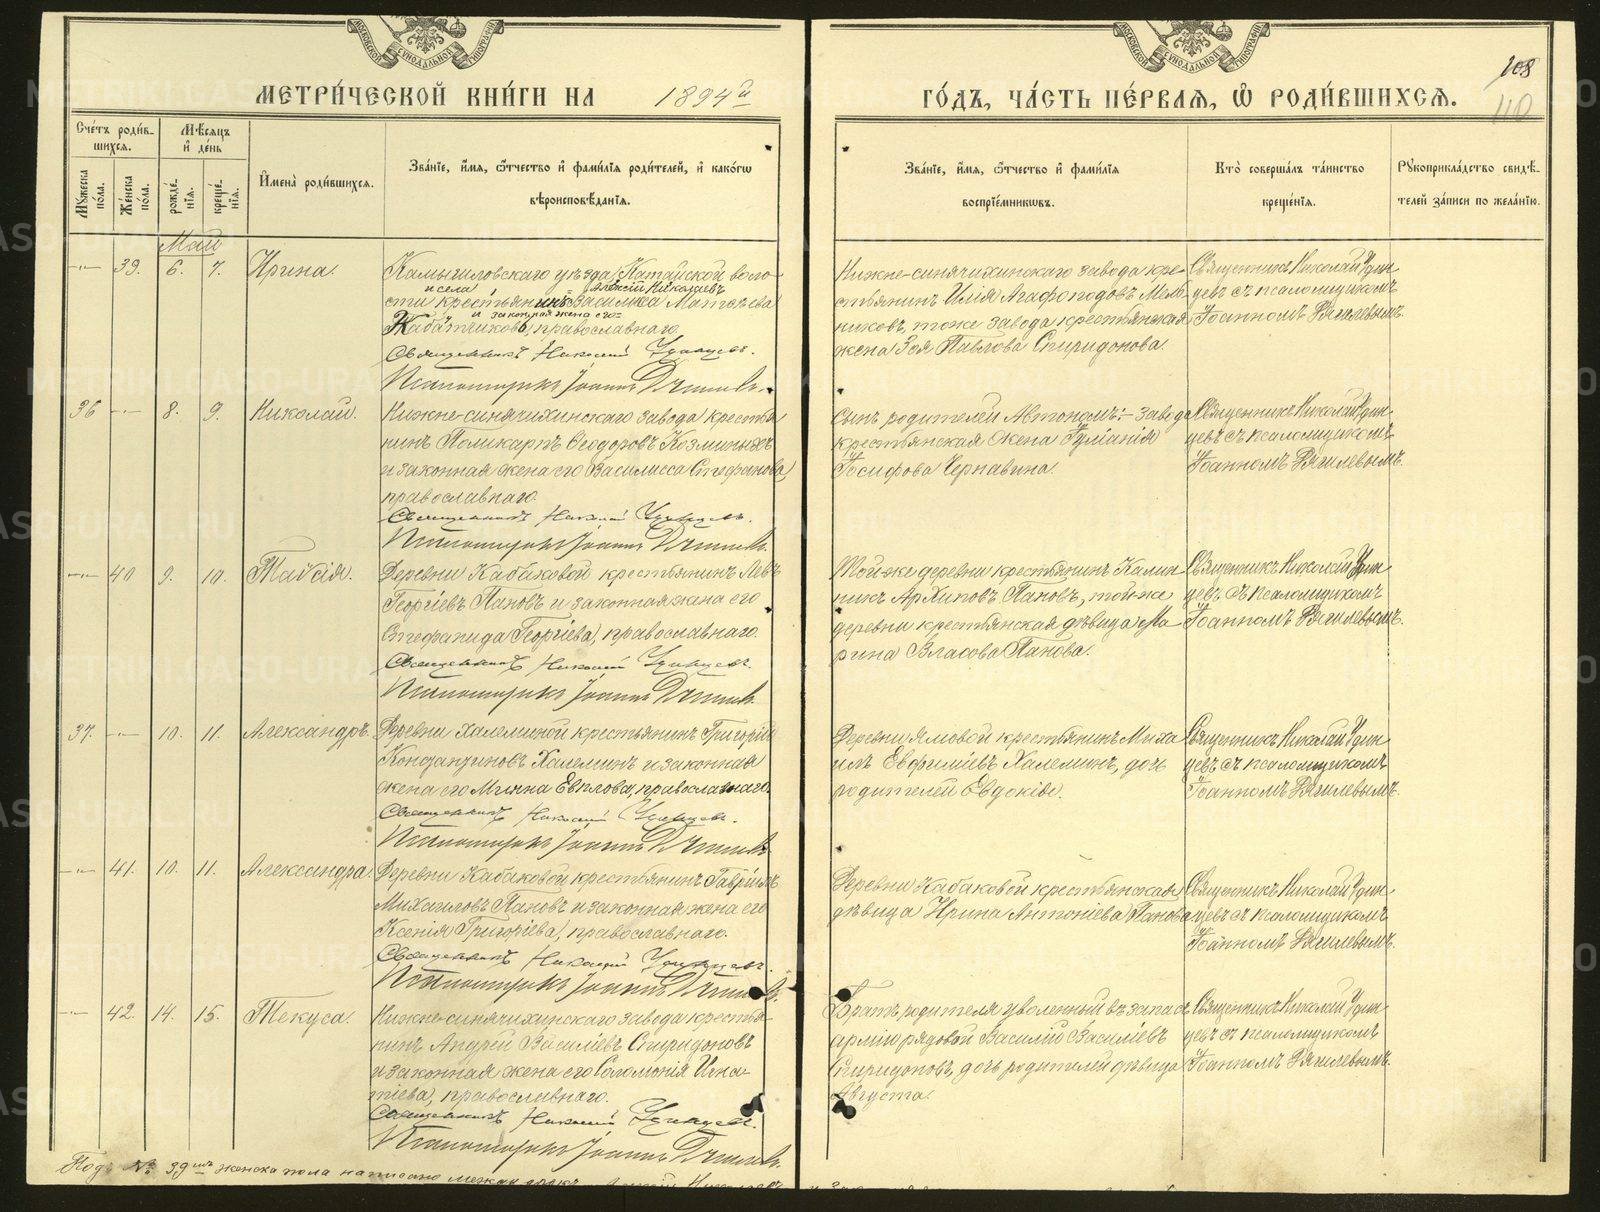 МЕТРИ́ЧЕСКОЙ КНИ́ГИ НА 1894й
ГО́ДЪ, ЧА́СТЬ ПЕ́РВАЯ, Ѡ РОДИ́ВШИХСЯ.
108
110
Сче́тъ роди́в-
шихся.
Мѣ́сяцъ
и де́нь
Му́жеска по́ла.
Же́нска по́ла.
рожде́нїя.
креще́нїя.
Имена̀ роди́вшихся.
Зва́нїе, и́мя, ѻ́тчество и фами́лїя роди́телей, и како́гѡ
вѣроисповѣ́данїя.
Зва́нїе, и́мя, ѻ́тчество и фами́лїя
воспрїе́мниковъ.
Кто̀ соверша́лъ та́инство
креще́нїя.
Рукоприкла́дство свидѣ́-
телей за́писи по жела́нїю.
Май
39. 6. 7. Ирина.
Камышловскаго уѣзда, Катайской воло-
и села Алексій Николаевъ
сти крестьянинъ Василиса Матѳеева
и законная жена его
православнаго.
Священникъ Николай Удинцевъ.
Псаломщикъ Іоаннъ
Нижне-синячихинскаго завода кре-
стьянинъ Илія Агафоподовъ Мель-
никовъ, тоже завода крестьянская
жена Зоя Павлова Спиридонова.
Священникъ Николай Удин-
цевъ съ псаломщикомъ
Іоанномъ
36 8. 9. Николай.
Нижне-синячихинскаго завода крестья-
нинъ Поликарпъ Ѳеодоровъ Козминыхъ
и законная жена его Василисса Стефанова,
православнаго.
Священникъ Николай Удинцевъ.
Псаломщикъ Іоаннъ
Сынъ родителей Автономъ; завода
крестьянская жена Іуліанія
Іосифова Чернавина.
Священникъ Николай Удин-
цевъ съ псаломщикомъ
Іоанномъ
40 9. 10. Таисія.
Деревни Кабаковой крестьянинъ Левъ
Георгіевъ Пановъ и законная жена его
Стефанида Георгіева, православнаго.
Священникъ Николай Удинцевъ.
Псаломщикъ Іоаннъ
Той-же деревни крестьянинъ Калин-
никъ Архиповъ Пановъ, той-же
деревни крестьянская дѣвица Ма-
рина Власова Панова.
Священникъ Николай Удин-
цевъ съ псаломщикомъ
Іоанномъ
37. 10. 11. Александръ.
Деревни Халеминой крестьянинъ Григорій
Халеминъ и законная
жена его православнаго.
Священникъ Николай Удинцевъ.
Псаломщикъ Іоаннъ
Деревни Ямовой крестьянинъ Миха-
илъ Евфиміевъ Халеминъ, дочь
родителей Евдокія.
Священникъ Николай Удин-
цевъ съ псаломщикомъ
Іоанномъ
41. 10. 11. Александра.
Деревни Кабаковой крестьянинъ Гавріилъ
Михаиловъ Пановъ и законная жена его
Ксенія Григоріева, православнаго.
Священникъ Николай Удинцевъ.
Псаломщикъ Іоаннъ
Деревни Кабаковой крестьянская
дѣвица Ирина Антоніева Панова
Священникъ Николай Удин-
цевъ съ псаломщикомъ
Іоанномъ
42. 14. 15. Текуса.
Нижне-синячихинскаго завода крестья-
нинъ Андрей Василіевъ Спиридоновъ
и законная жена его Соломонія Игна-
тіева, православнаго.
Священникъ Николай Удинцевъ.
Псаломщикъ Іоаннъ
Братъ родителя уволенный въ запасъ
арміи рядовой Василій Василіевъ
Спиридоновъ, дочь родителей дѣвица
Августа.
Священникъ Николай Удин-
цевъ съ псаломщикомъ
Іоанномъ
Подъ № 39мъ женска пола написано между строкъ Алексій Николаевъ